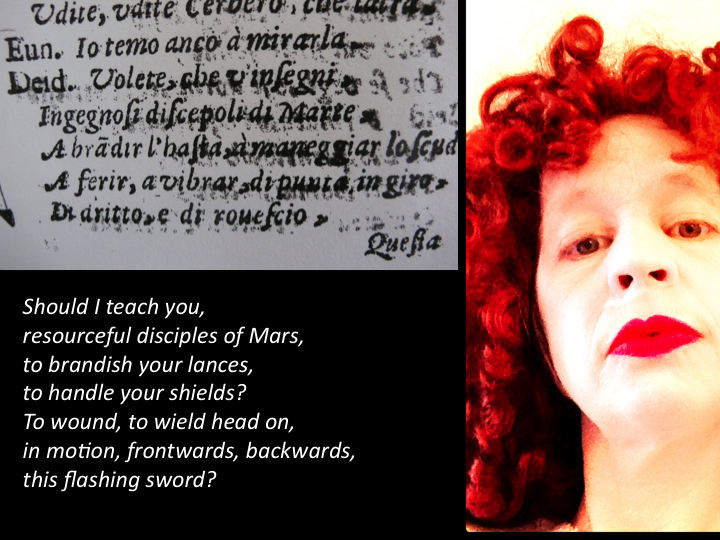 Udite, udite Cerbero, che latra.
Eun. Io temo anco à mirarla.
Deid. Volete, che v'insegni,
Ingegnosi discepoli di Marte,
A brādir l'hasta, à maneggiar lo scud
A ferir, a vibrar, di punta, in giro,
Di dritto, e di rouescio,
Questa
Should I teach you,
resourceful disciples of Mars,
to brandish your lances,
to handle your shields?
To wound, to wield head on,
in motion, frontwards, backwards,
this flashing sword?